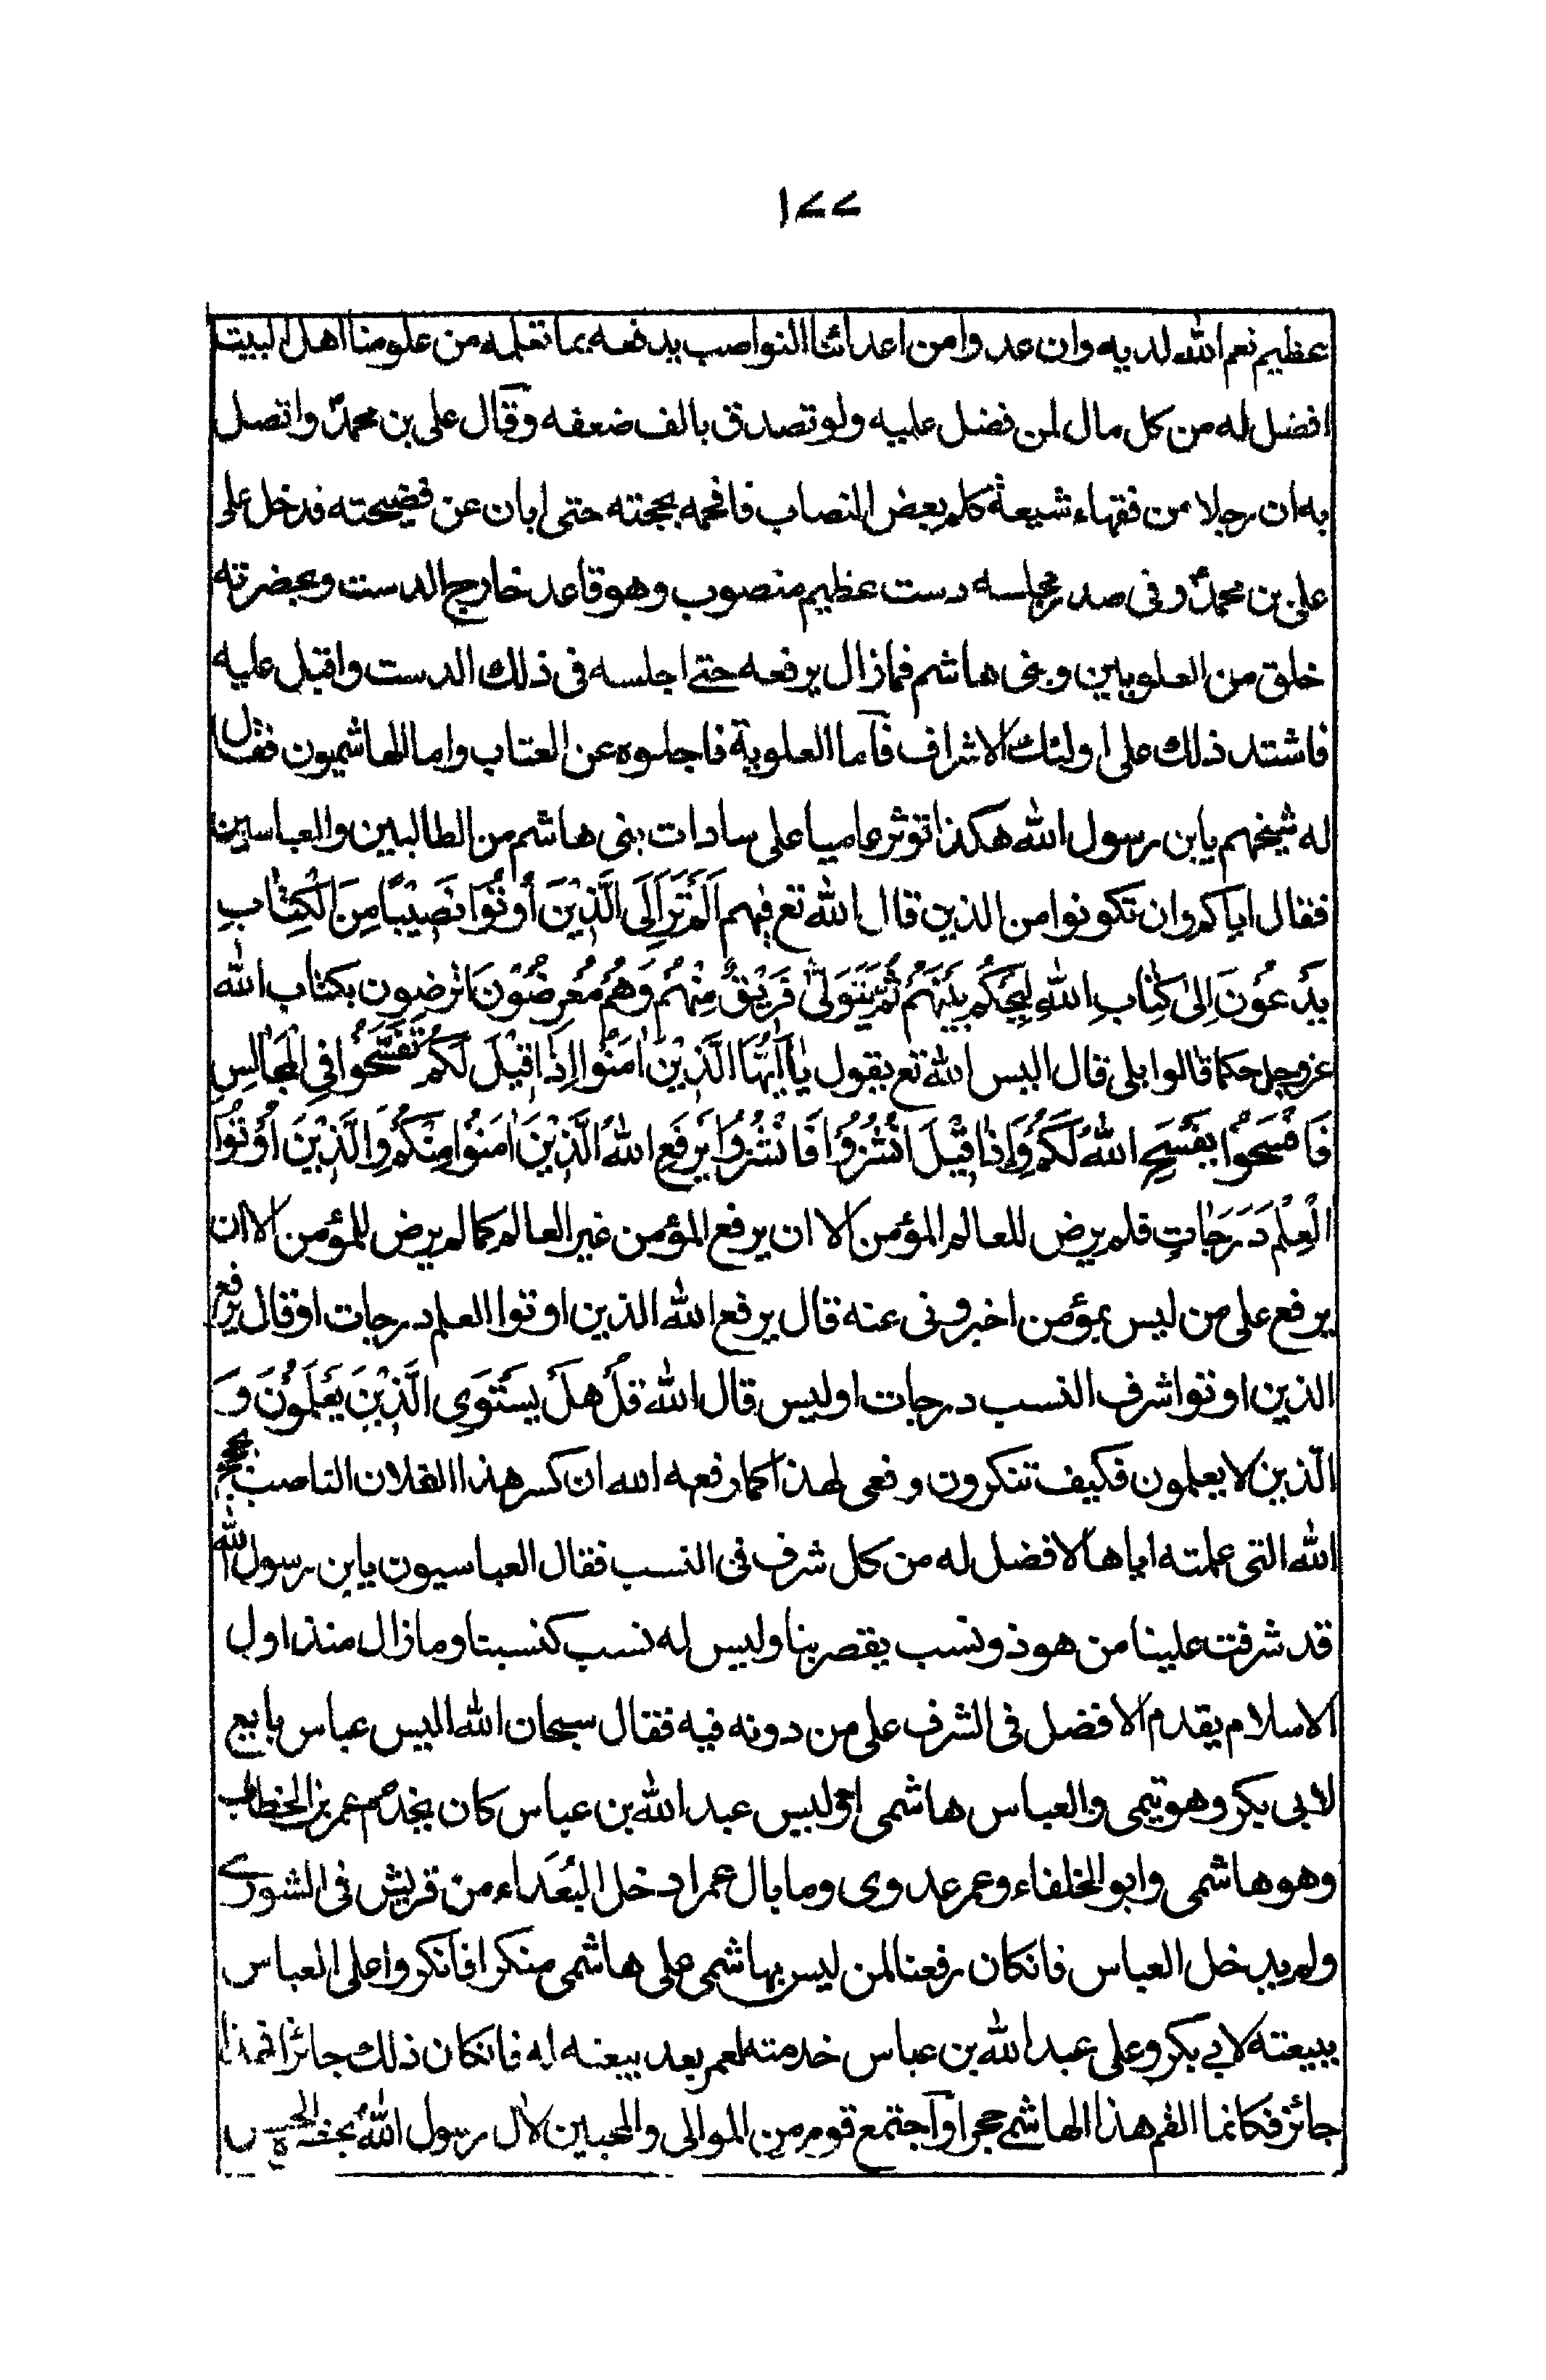 ١٧٧
عظيم نعم الله لديه وان عدوا من اعدائنا النواصب يدفعه بما تعلمه من علومنا اهل البيت
افضل له من كل مال لمن فضل عليه ولو تصدق بالف ضعفه وقال علي بن محمدؑ واتصل
به ان رجلا من فقهاء شيعة كلم بعض النصاب فافحمه بحجته حتى ابان عن فضيحته فدخل على
علي بن محمدؑ وفى صدر مجلسه دست عظيم منصوب وهو قاعد خارج الدست وبحضرته
خلق من العلويين وبنى هاشم فما زال يرفعه حتے اجلسه فى ذلك الدست واقبل عليه
فاشتد ذلك على اولئك الاشراف فآما العلوية فاجلوه عن العتاب واما الهاشميون فقال
له شيخهم يا بن رسول الله هكذا توثر عاميا على سادات بنى هاشم من الطالبين والعباسين
فقال اياكم وان تكونوا من الذين قال الله تع فيهم اَلَمْ تَرَ اِلَى الَّذِيْنَ اُوْتُوْا نَصِيْبًا مِنَ الْكِتٰابِ
يَدْعُوْنَ اِلىٰ كِتٰابِ اللهِ لِيَحْكُمَ بَيْنَهُمْ ثُمَّ يَتَوَلّٰى فَرِيْقٌ مِنْهُمْ وَهُمْ مُعْرِضُوْنَ اترضون بكتاب الله
عز وجل حكما قالوا بلى قال اليس الله تع يقول يٰا اَيُّهَا الَّذِيْنَ اٰمَنُوْا اِذٰا قِيْلَ لَكُمْ تَفَسَّحُوْا فِي الْمَجٰالِسِ
فَافْسَحُوْا يَفْسَحِ اللهُ لَكُمْ وَاِذٰا قِيْلَ انْشُزُوْا فَانْشُزُوْا يَرْفَعِ اللهُ الَّذِيْنَ اٰمَنُوْا مِنْكُمْ وَالَّذِيْنَ اُوْتُوْا
الْعِلْمَ دَرَجٰاتٍ فلم يرض للعالم المؤمن الا ان يرفع المؤمن غير العالم كما لم يرض للمؤمن الا ان
يرفع على من ليس بمؤمن اخبرونى عنه قال يرفع الله الذين اوتوا العلم درجات او قال يرفع
الذين اوتوا شرف النسب درجات اوليس قال الله قُلْ هَلْ يَسْتَوِى الَّذِيْنَ يَعْلَمُوْنَ وَ
الّذين لا يعلمون فكيف تنكرون رفعى لهذا كما رفعه الله ان كسر هذا الفلان الناصب بحجج
الله التى علمته اياها لافضل له من كل شرف فى النسب فقال العباسيون يا بن رسول الله
قد شرفت علينا من هو ذو نسب يقصر بنا وليس له نسب كنسبنا وما زال منذ اول
الاسلام يقدم الافضل فى الشرف على من دونه فيه فقال سبحان الله اليس عباس بايع
لابى بكر وهو تيمى والعباس هاشمى اوليس عبد الله بن عباس كان يخدم عمر بن الخطاب
وهو هاشمى وابو الخلفاء وعمر عدوى وما بال عمر ادخل البُعَداء من قريش فى الشورے
ولم يدخل العباس فانكان رفعنا لمن ليس بهاشمى على هاشمى منكرا فانكروا على العباس
ببيعته لابي بكر وعلى عبد الله بن عباس خدمته لعمر بعد بيعته له فانكان ذلك جائزا فهذا
جائز فكانما القم هذا الهاشمے حجرا وآجتمع قوم من الموالى والمحبين لال رسول اللهؐ بحضرة